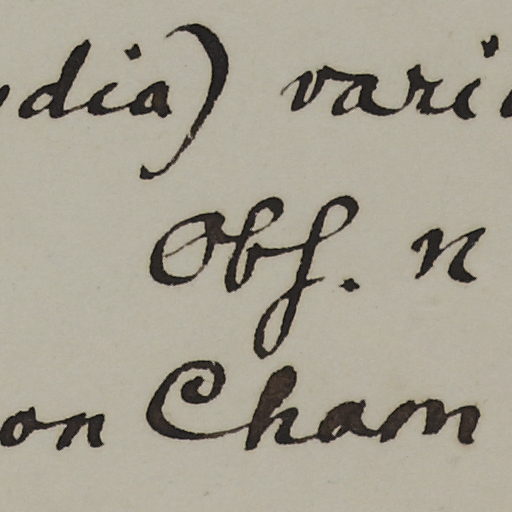 dia) vari
Obſ. n
on Cham